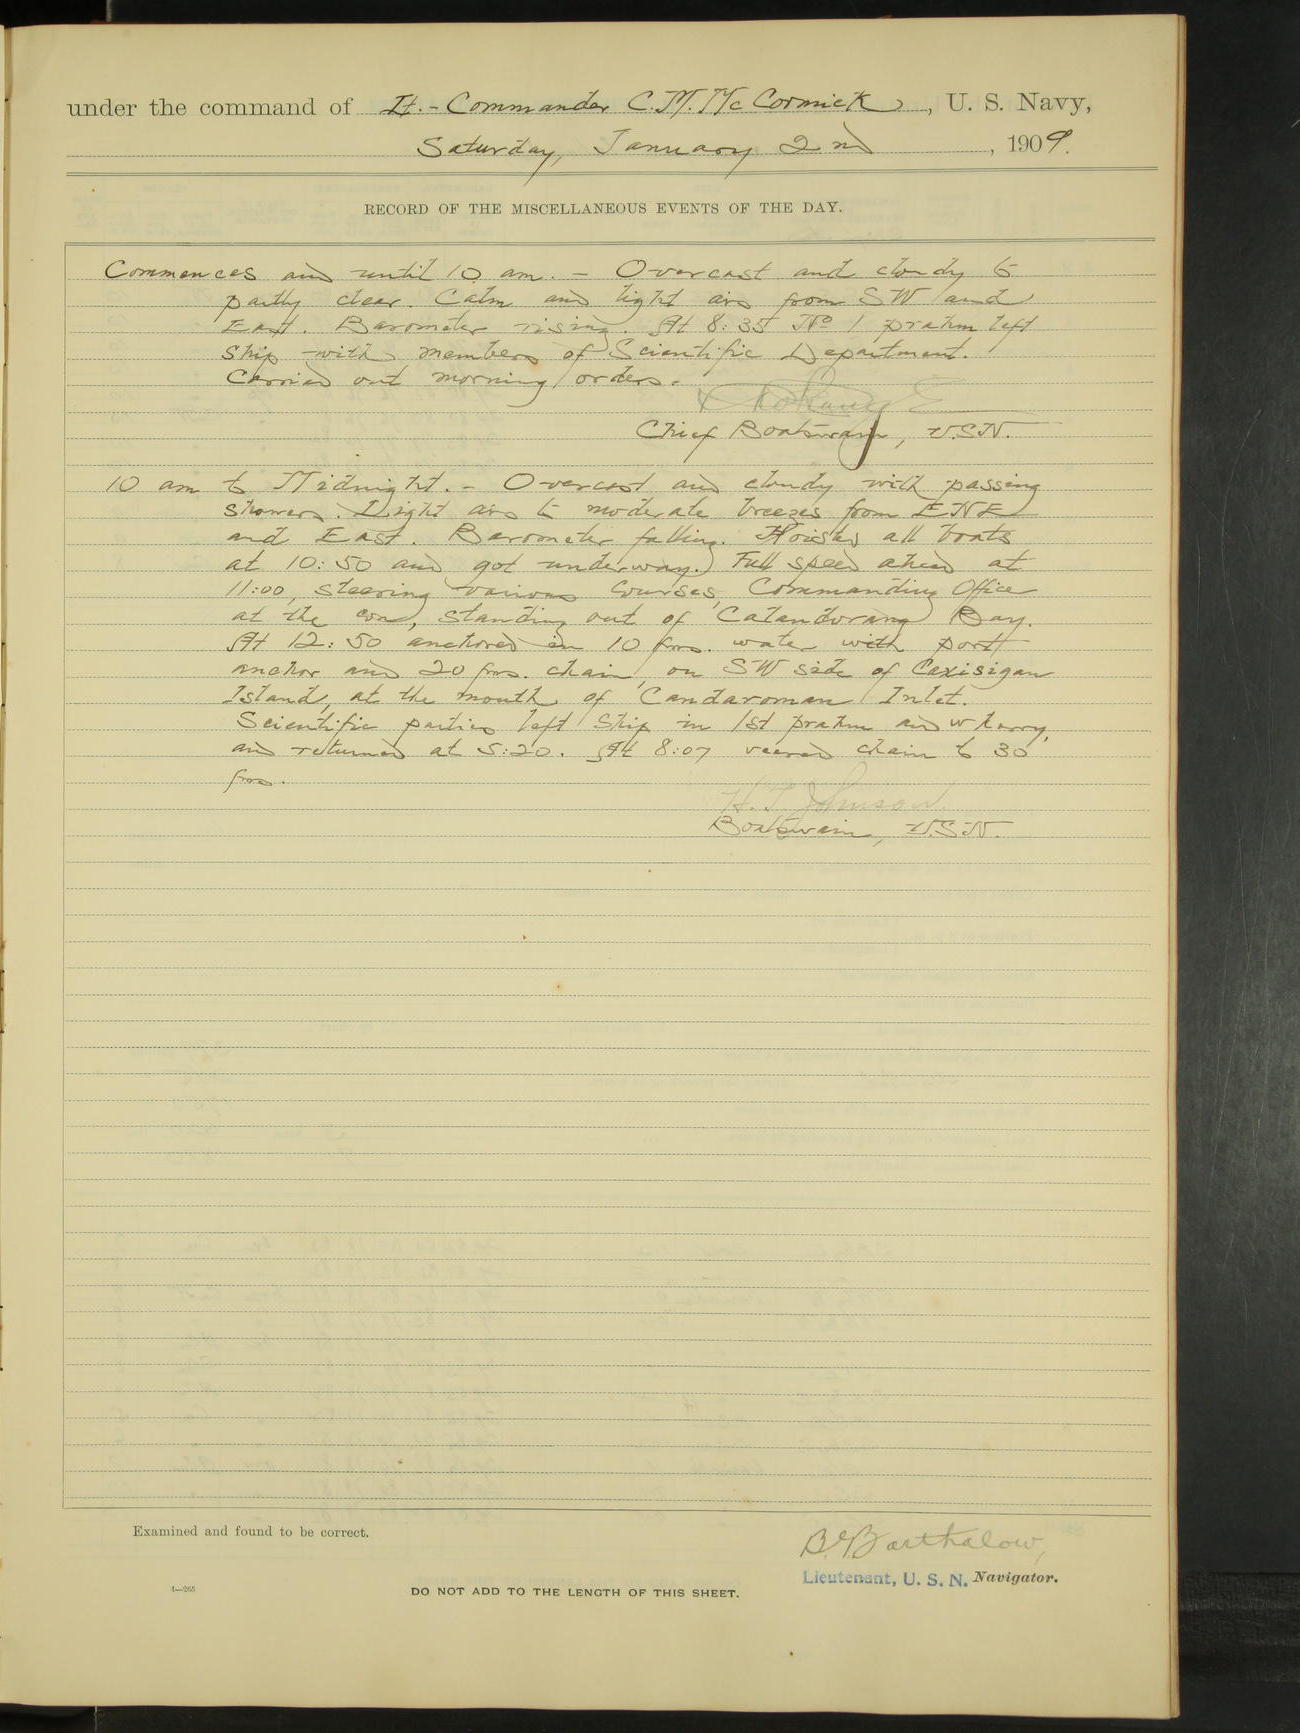 under the command of Lt.-Commander C. M. McCormick, U. S. Navy,
Saturday, January 2nd, 1909.
RECORD OF THE MISCELLANEOUS EVENTS OF THE DAY.
Commences and until 10 am. - Overcast and cloudy to
partly clear. Calm and light airs from SW and
East. Barometer rising. At 8:35 No 1 prahm left
ship with members of Scientific Department.
Carried out morning orders.
Chief Boatswain, U.S.N.
10 am to Midnight. - Overcast and cloudy with passing
showers. Light airs to moderate breezes from ENE
and East. Barometer falling. Hoisted all boats
at 10:50 and got underway. Full speed ahead at
11:00, steering various courses, Commanding Office
at the con, standing out of Catanduvang Bay.
At 12:50 anchored in 10 fms. water with port
anchor and 20 fms. chain, on SW side of Caxisigan
Island, at the mouth of Candaroman Inlet.
Scientific parties left ship in 1st prahm and wherry,
and returned at 5:20. At 8:07 veered chain to 30
fms.
H. T. Johnson.
Boatswain, U.S.N.
Examined and found to be correct.
B. Barthalow,
Lieutenant, U. S. N. Navigator.
4—265
DO NOT ADD TO THE LENGTH OF THIS SHEET.